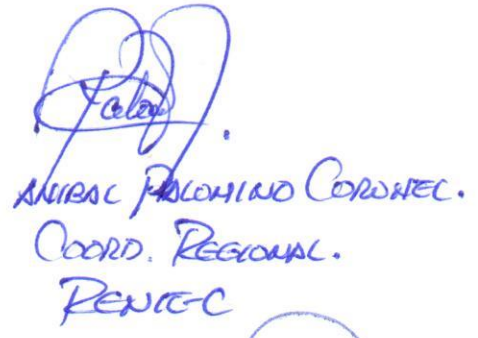 ANIBAL PALOMINO CORONEL.
COORD. REGIONAL.
RENIE-C